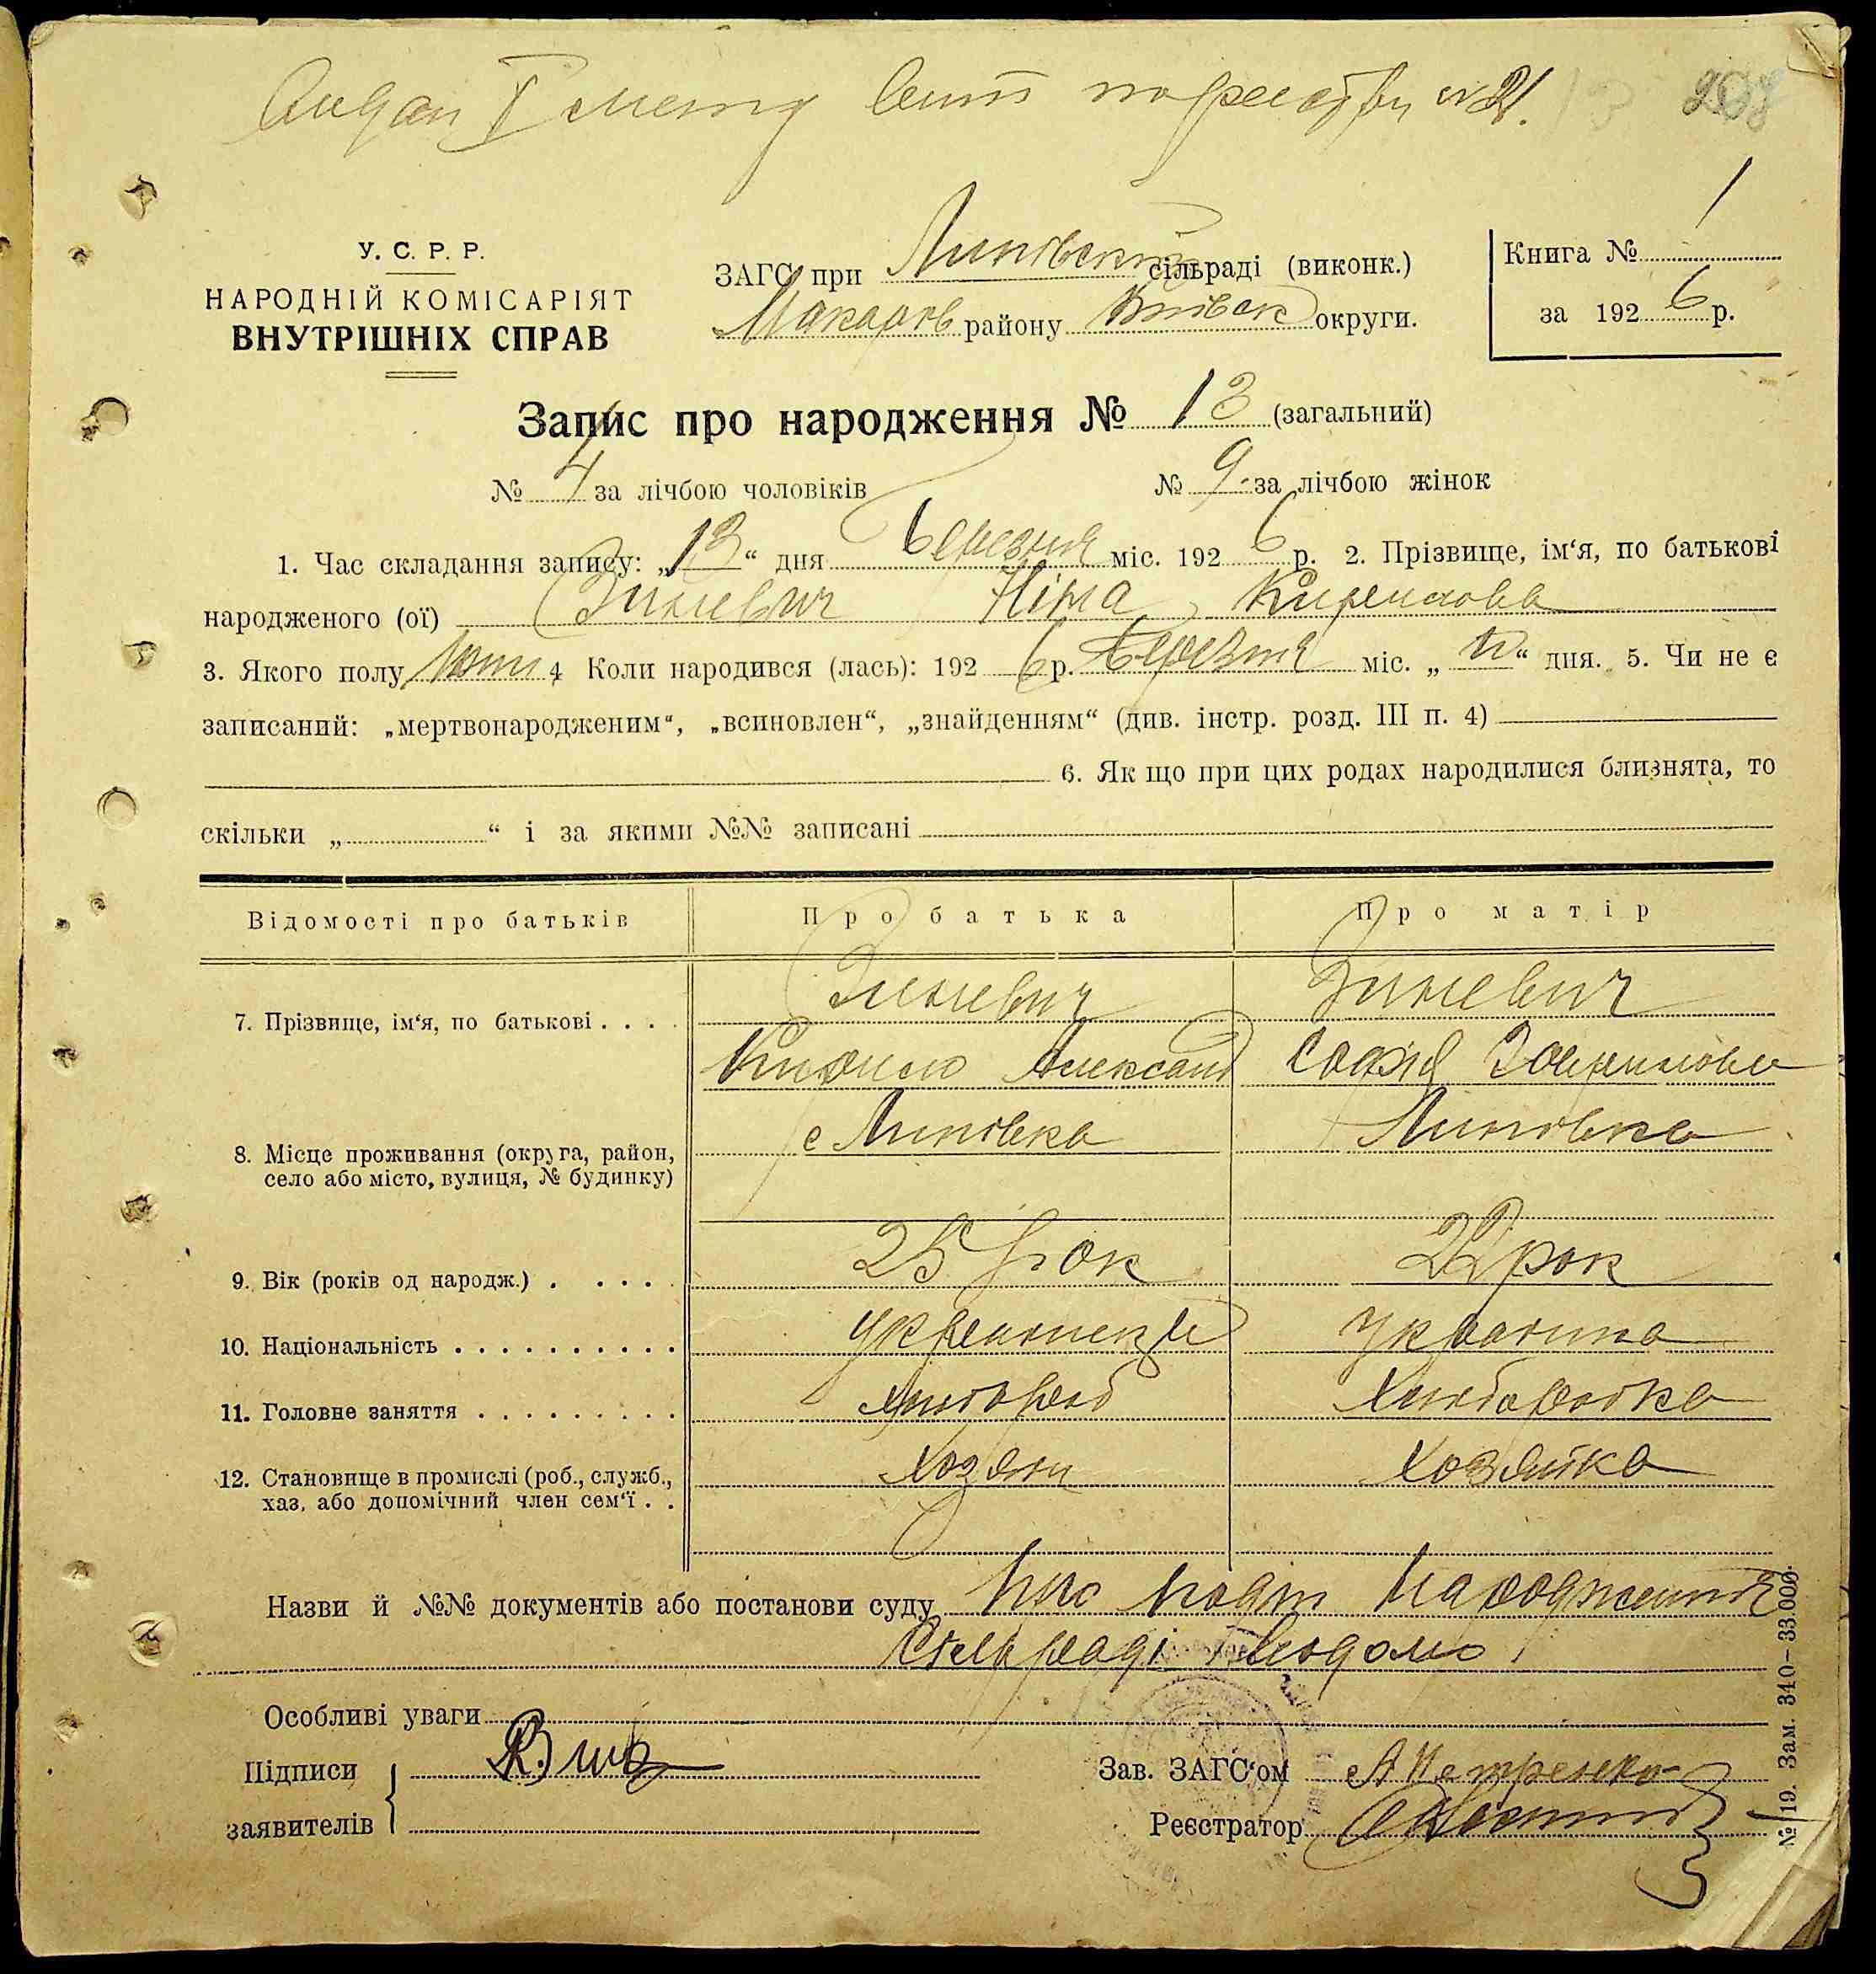 У. С. Р. Р.
НАРОДНІЙ КОМІСАРІЯТ
ВНУТРІШНІХ СПРАВ
ЗАГС при Липівській сільраді (виконк.)
Макарів району Київськ округи.
Книга № 1
за 1926 р.
Запис про народження № 13 (загальний)
№ 4 за лічбою чоловіків № 9 за лічбою жінок
1. Час складання запису: „13“ дня березня міс. 1926 р. 2. Прізвище, ім‘я, по батькові
народженого (ої) Зиневич Ніна Кирилова
3. Якого полу жін 4 Коли народився (лась): 1926 р. березня міс. „ “ дня. 5. Чи не є
записаний: „мертвонародженим“, „всиновлен“, „знайденням“ (див. інстр. розд. III п. 4)
6. Як що при цих родах народилися близнята, то
скільки „ “ і за якими №№ записані
Відомості про батьків Про батька Про матір
7. Прізвище, ім‘я, по батькові . . . . Зиневич Зиневич
Кирило Александ Софія
8. Місце проживання (округа, район, с Липівка Липівка
село або місто, вулиця, № будинку)
9. Вік (років од народж.) . . . . . 25 рок 22 рок
10. Національність . . . . . . . . . . українець україинка
11. Головне заняття . . . . . . . . . хлібороб хліборобка
12. Становище в промислі (роб., служб., хозяин хозяйка
хаз, або допомічний член сем‘ї . .
Назви й №№ документів або постанови суду народження
сільраді відомо
Особливі уваги
Підписи
заявителів
Зав. ЗАГС‘ом А Петренко
Реєстратор
№ 19. Зам. 310–33.000.